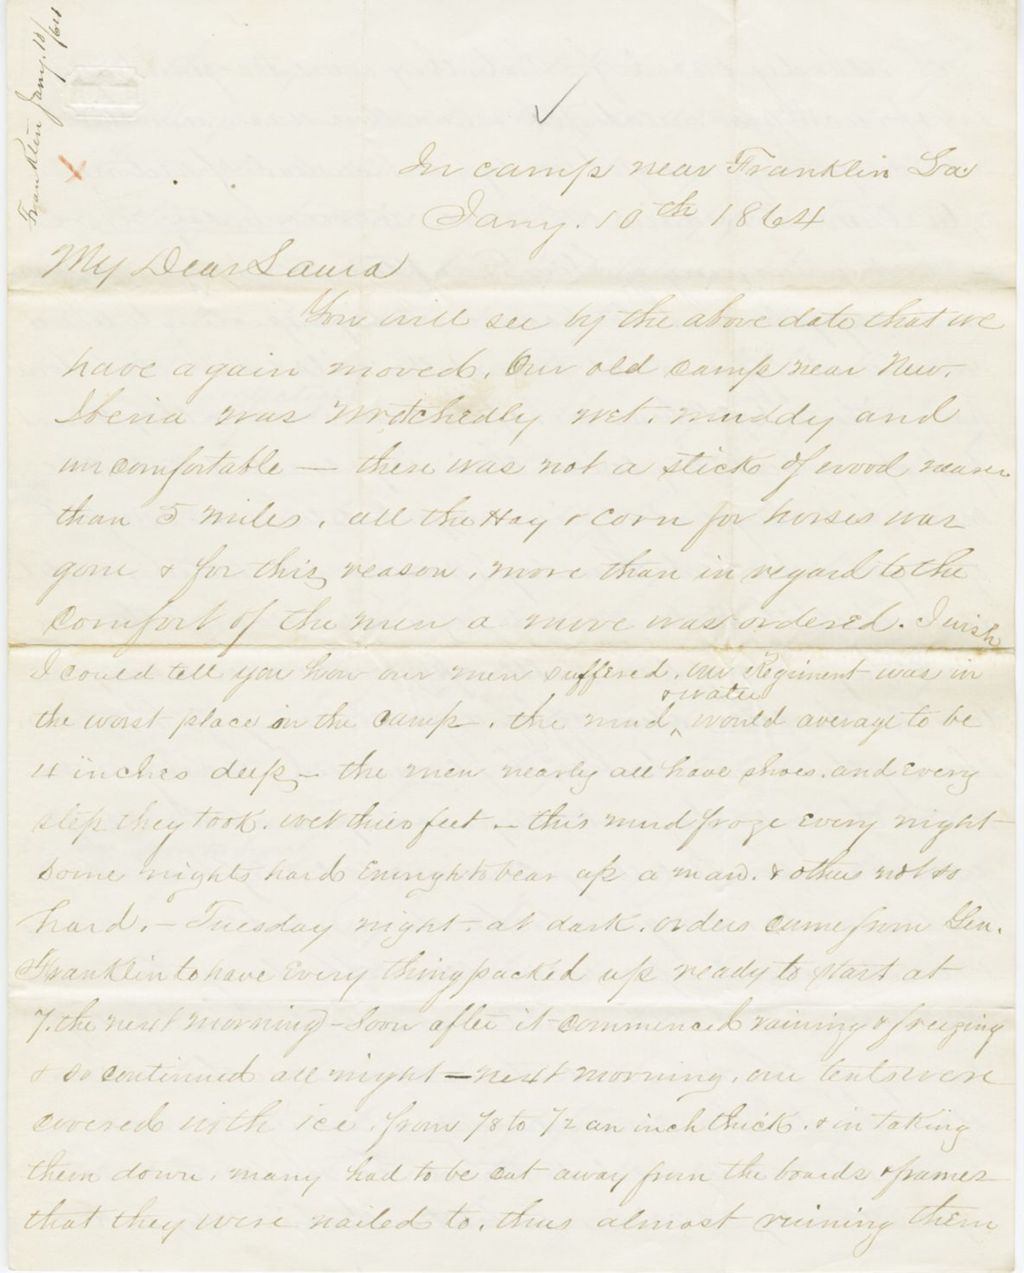 Franklin Jany. 10/64
In camp near Franklin La
Jany. 10th 1864
My Dear Laura
You will see by the above date that we
have again moved. Our old camp near New-
Iberia was wretchedly wet. muddy and
uncomfortable — there was not a stick of wood nearer
than 5 miles, all the Hay & corn for horses was
gone & for this reason, more than in regard to the
comfort of the men a move was ordered. I wish
I could tell you how our men suffered. our Regiment was in
the worst place in the camp. the mud & water would average to be
4 inches deep - the men nearly all have shoes. and every
step they took. wet their feet - this mud froze every night
some nights hard enough to bear up a man. & others not so
hard. - Tuesday night - at dark. orders came from Gen.
Franklin to have every thing packed up ready to start at
7. the next morning - Soon after it commenced raining & freezing
& so continued all night — next morning. our tents were
covered with ice. from 1/8 to 1/2 an inch thick. & in taking
them down. many had to be cut away from the boards & frames
that they were nailed to. thus almost ruining them